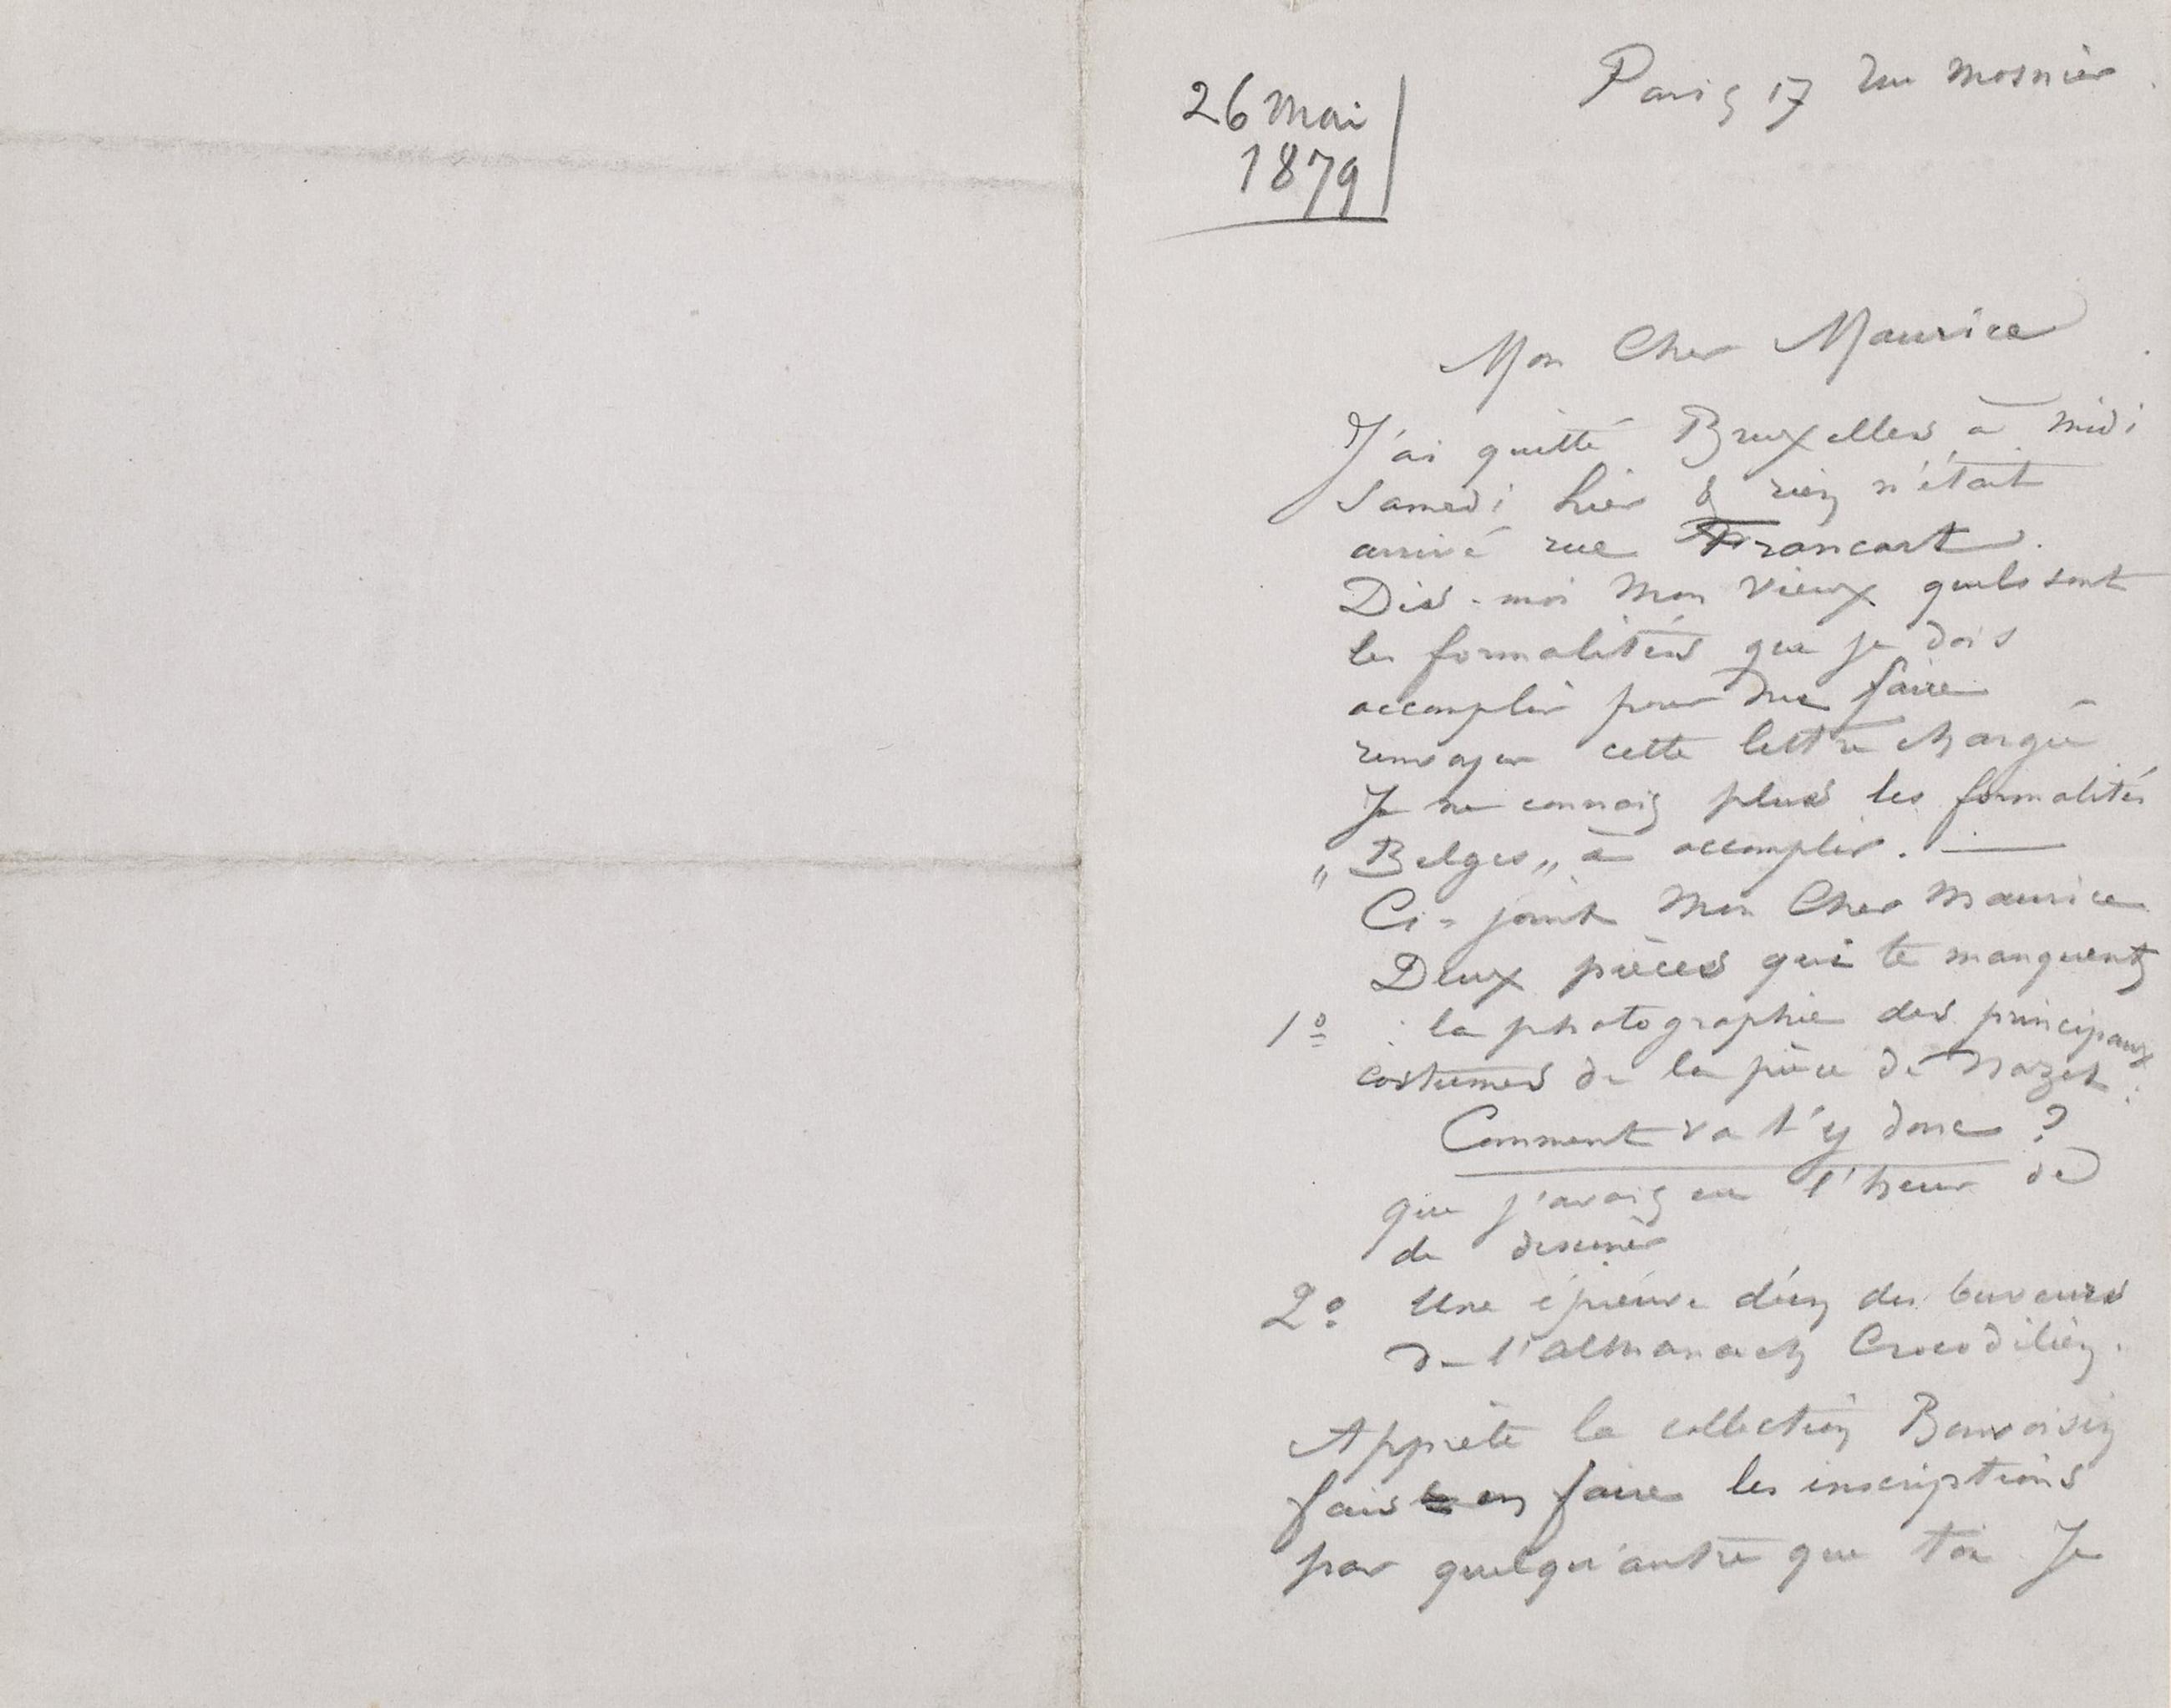 26 Mai
1879
Paris 17 rue Mosnier
Mon Cher Maurice
J'ai quitté Bruxelles à midi
Samedi hier & rien n'était
arrivé rue Francart.
Dis-moi mon vieux quels sont
les formalités que je dois
accomplir pour me faire
renvoyer cette lettre chargée
Je ne connais plus les formalités
„Belges„ à accomplir. —
Ci-joint Mon Cher Maurice
Deux pièces qui te manquent
1º : la photographie des principaux
costumes de la pièce de Nazet :
Comment va t'y donc ?
que j'avais eu l'heur de
de dessiner
2º Une épreuve des buveurs
de l'almanach Crocodilien.
Apprète la collection Bonvoisin
fais en faire les inscriptions
par quelqu'autre que toi Je